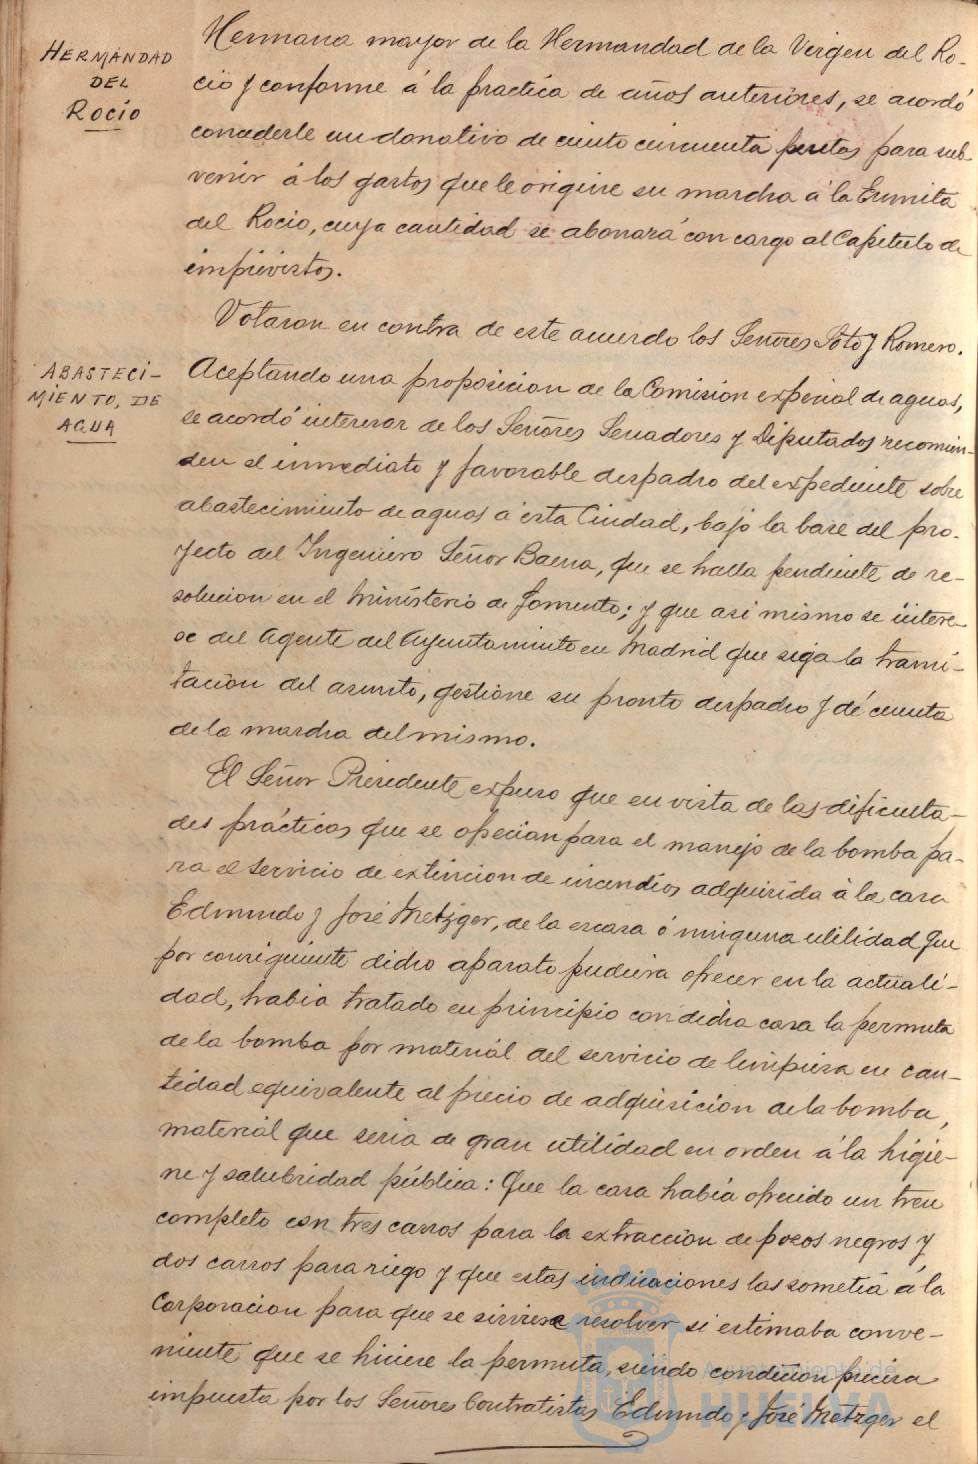 HERMANDAD
DEL
ROCÍO
Hermana mayor de la Hermandad de la Virgen del Ro-
cio y conforme á la practica de años anteriores, se acordó
concederle un donativo de ciento cincuenta pesetas para sub-
venir á los gastos que le origine su marcha á la Ermita
del Rocio, cuya cantidad se abonará con cargo al Capitulo de
imprevistos.
Votaron en contra de este acuerdo los Señores Soto y Romero.
ABASTECI-
MIENTO, DE
AGUA
Aceptando una proposicion de la Comision especial de aguas,
se acordó interesar de los Señores Senadores y Diputados recomien-
den el inmediato y favorable despacho del expediente sobre
abastecimiento de aguas á esta Ciudad, bajo la base del pro-
yecto del Ingeniero Señor Baena, que se halla pendiente de re-
solucion en el Ministerio de Fomento; y que asi mismo se intere-
se del Agente del Ayuntamiento en Madrid que siga la trami-
tacion del asunto, gestione su pronto despacho y dé cuenta
de la marcha del mismo.
El Señor Presidente expuso que en vista de las dificulta-
des prácticas que se ofrecian para el manejo de la bomba pa-
ra el servicio de extincion de incendios adquirida á la casa
Edmundo y José Metzger, de la escasa ó ninguna utilidad que
por consiguiente dicho aparato pudiera ofrecer en la actuali-
dad, habia tratado en principio con dicha casa la permuta
de la bomba por material del servicio de limpieza en can-
tidad equivalente al precio de adquisicion de la bomba,
material que seria de gran utilidad en orden á la higie-
ne y salubridad pública: Que la casa habia ofrecido un tren
completo con tres carros para la extraccion de pozos negros y
dos carros para riego y que estas indicaciones las sometia á la
Corporacion para que se sirviera resolver si estimaba conve-
niente que se hiciese la permuta, siendo condicion precisa
impuesta por los Señores Contratistas Edmundo y José Metzger el
Ayuntamiento de
HUELVA